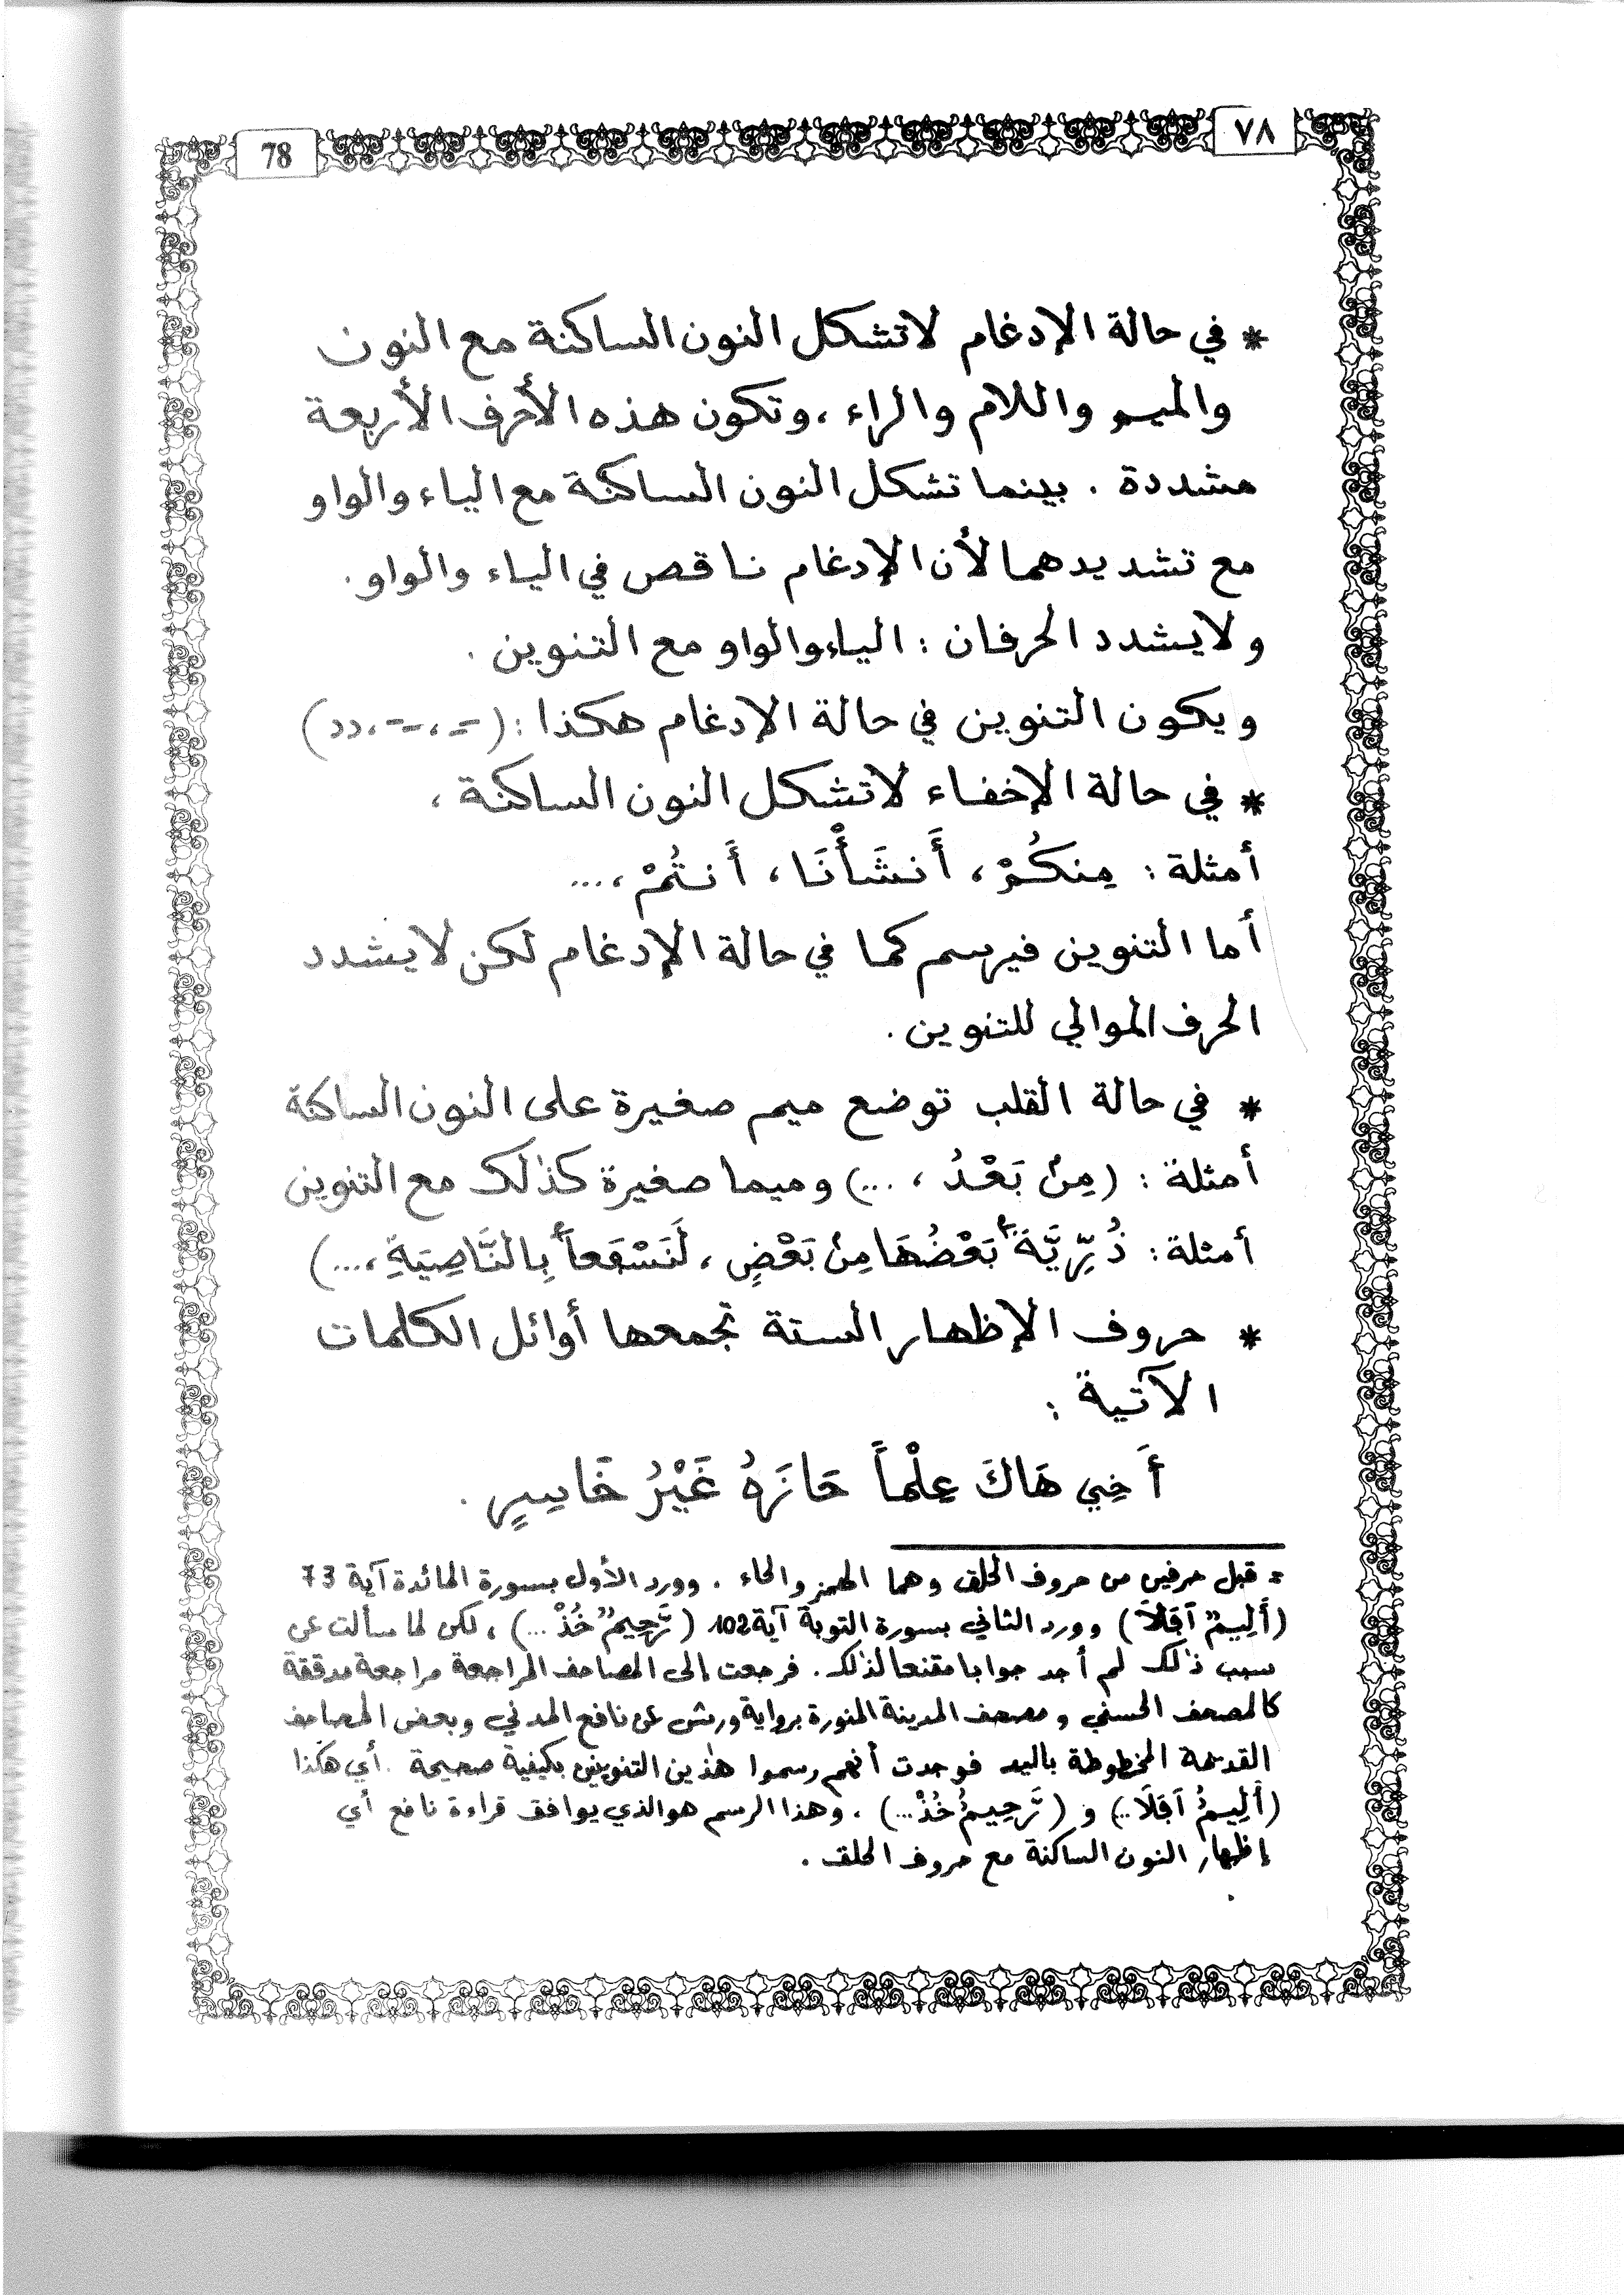 ٧٨
78
* في حالة الإدغام لا تشكل النون الساكنة مع النون
والميم واللام والراء ، وتكون هذه الأحرف الأربعة
مشددة . بينما تشكل النون الساكنة مع الياء والواو
مع تشديدهما لأن الإدغام ناقص في الياء والواو .
ولا يشدد الحرفان : الياء والواو مع التنوين .
ويكون التنوين في حالة الإدغام هكذا :
* في حالة الإخفاء لا تشكل النون الساكنة ،
أمثلة : مِنكُمْ ، أَنشَأْنَا ، أَنتُمْ ، ...
أما التنوين فيرسم كما في حالة الإدغام لكن لا يشدد
الحرف الموالي للتنوين .
* في حالة القلب توضع ميم صغيرة على النون الساكنة
أمثلة : (مِنۢ بَعْدُ ، ...) وميما صغيرة كذلك مع التنوين
أمثلة : ذُرِّيَّةَۢ بَعْضُهَا مِنۢ بَعْضٍ ، لَنَسْفَعاَۢ بِالنَّاصِيَةِ ، ...)
* حروف الإظهار الستة تجمعها أوائل الكلمات
الآتية :
أَخِي هَاكَ عِلْماً حَازَهُ غَيْرُ خَاسِرٍ .
= قبل حرفين من حروف الحلق وهما الهمز والخاء . وورد الأول بسورة المائدة آية 73
(أَلِيمٌ اَفَلَا) وورد الثاني بسورة التوبة آية 102 (رَّحِيمٌ خُذْ ...) ، لكن لما سألت عن
سبب ذلك لم أجد جوابا مقنعا لذلك . فرجعت إلى المصاحف المراجعة مراجعة مدققة
كالمصحف الحسني ومصحف المدينة المنورة برواية ورش عن نافع المدني وبعض المصاحف
القديمة المخطوطة باليد فوجدت أنهم رسموا هذين التنوينين بكيفية صحيحة . أي هكذا
(أَلِيمٌ اَفَلَا ..) و (رَّحِيمٌ خُذْ ...) ، وهذا الرسم هو الذي يوافق قراءة نافع أي
إظهار النون الساكنة مع حروف الحلق .